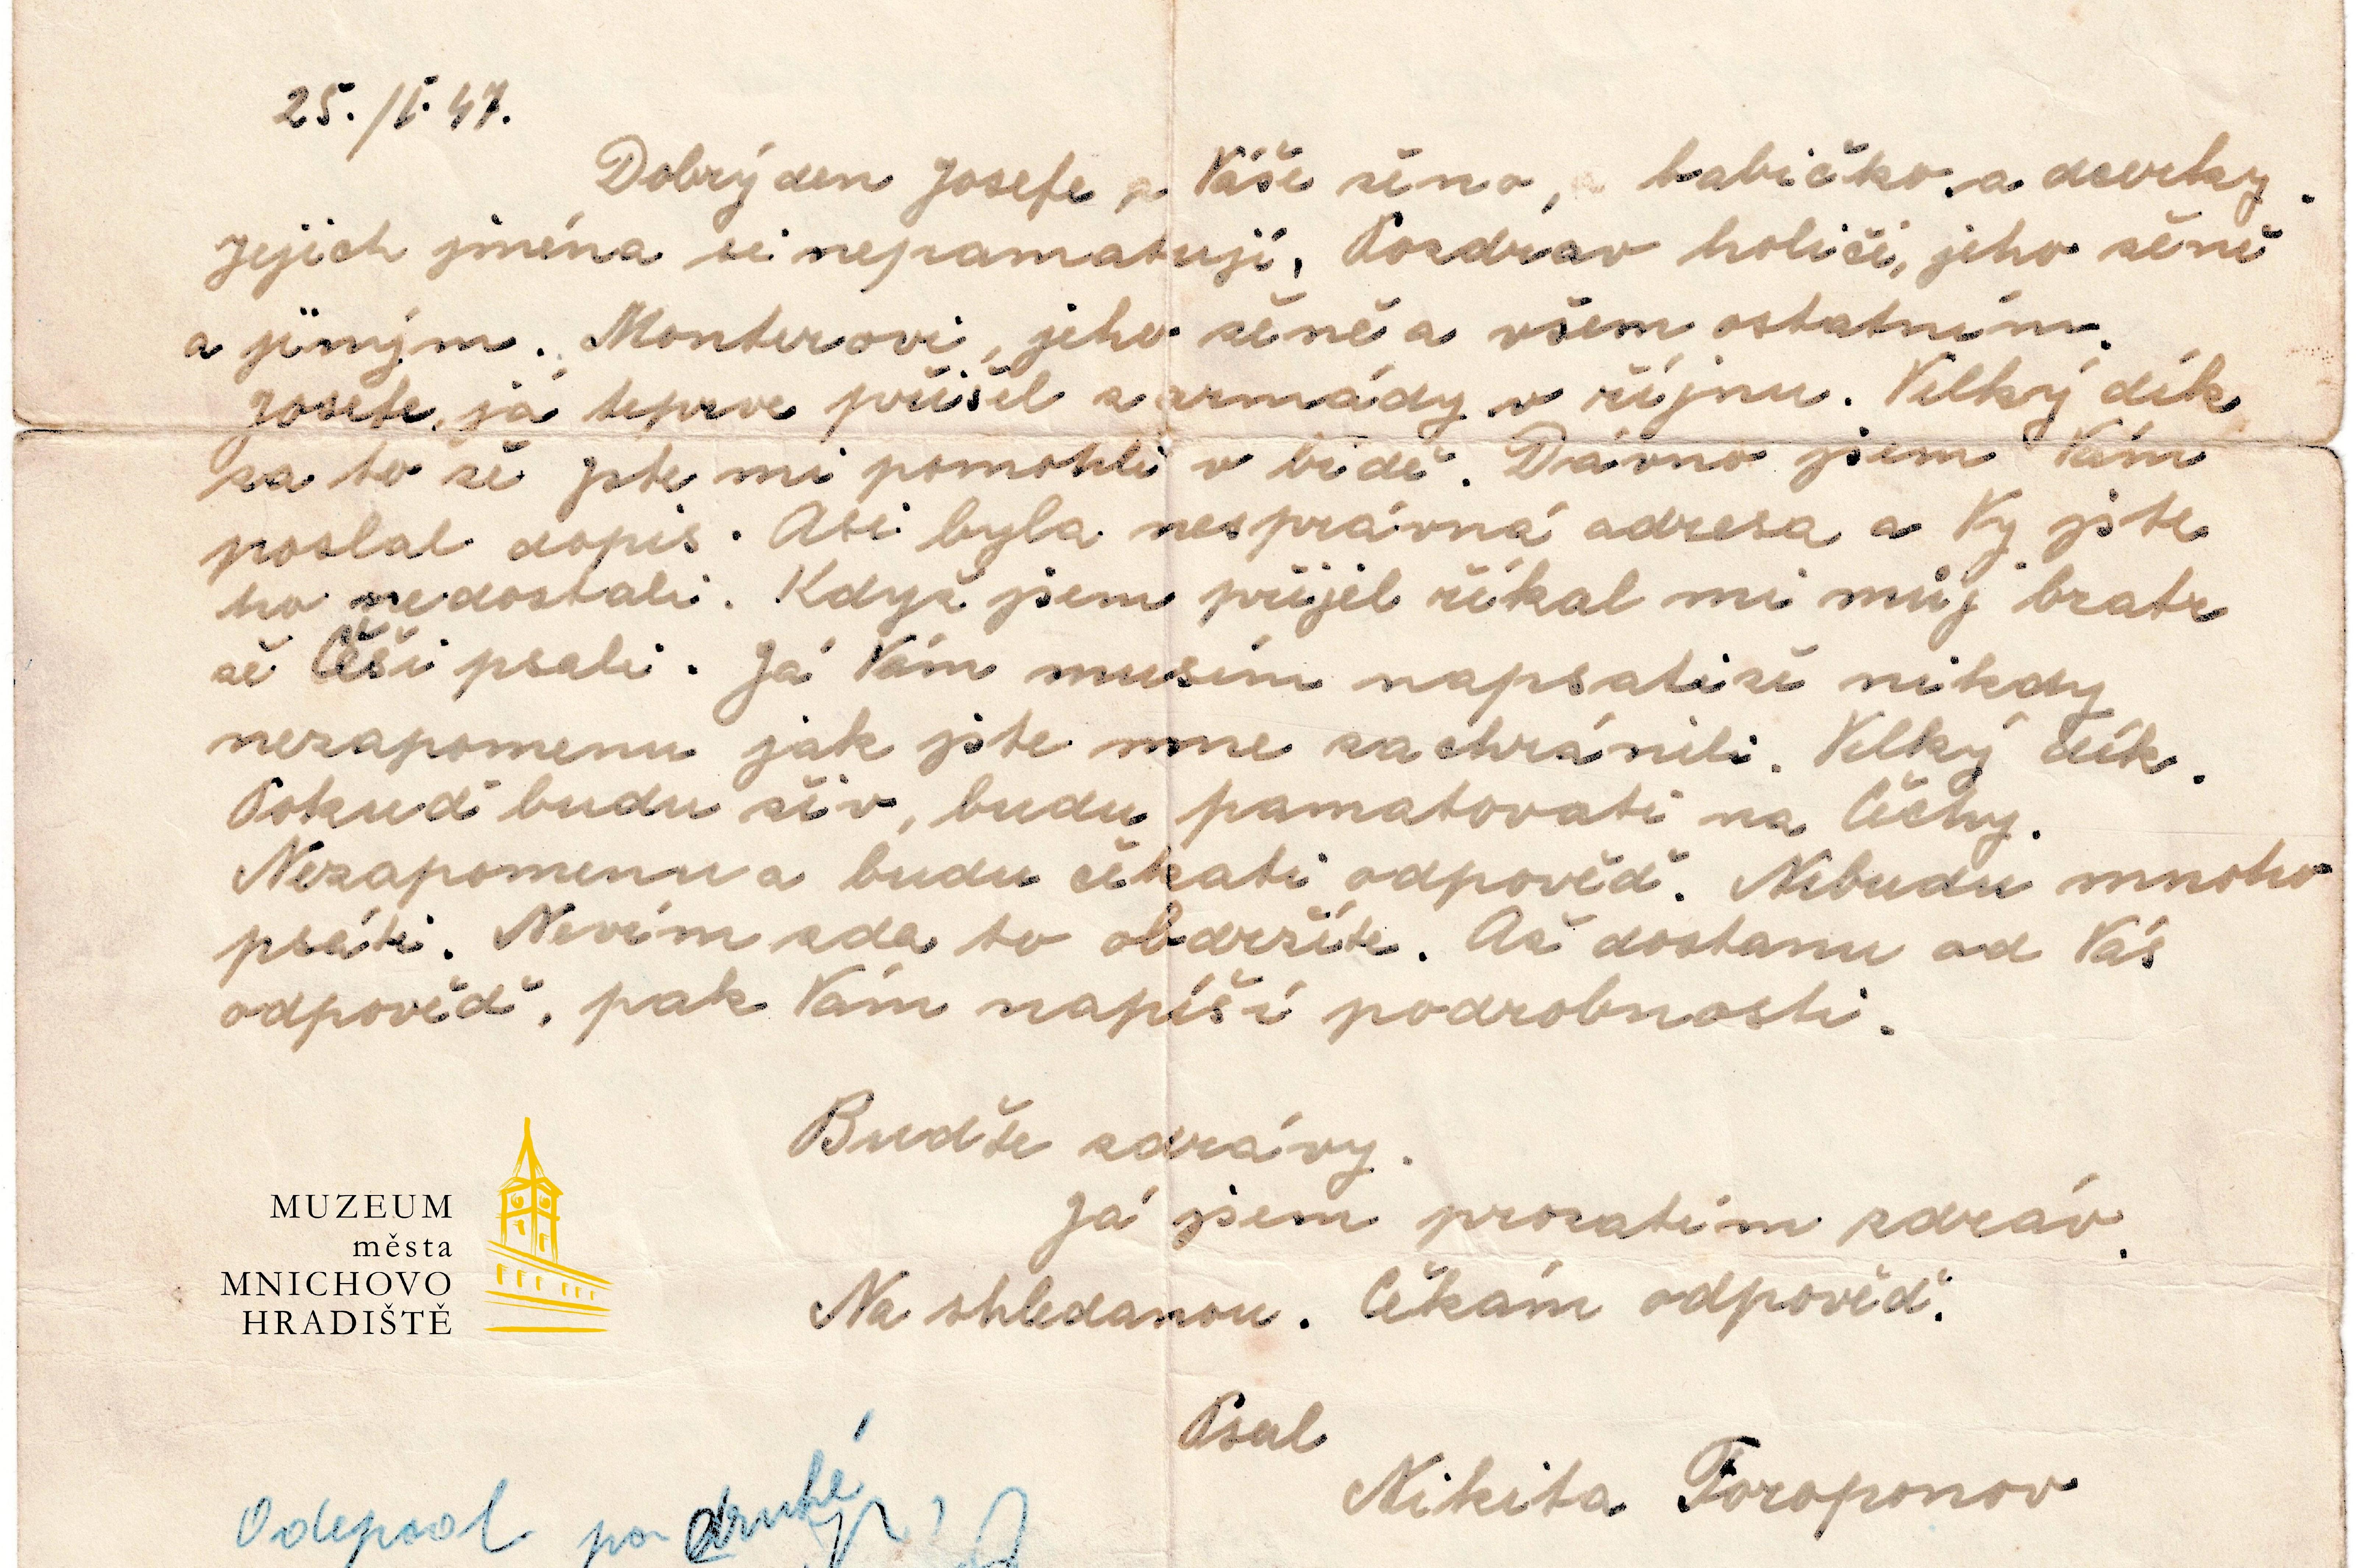 25./I.47.
Dobrý den Josefe a Váše ženo, babičko a dcerky.
Jejich jména si nepamatuji, Pozdrav holiči, jeho ženě
a jiným. Monterovi, jeho ženě a všem ostatním.
Josefe, já teprve přišel z armády v říjnu. Velký dík
za to že jste mi pomohli v bídě. Dávno jsem Vám
poslal dopis. Asi byla nesprávná adresa a Vy jste
ho nedostali. Když jsem přijel říkal mi můj bratr
že Češi psali. Já Vám musím napsati že nikdy
nezapomenu jak jste mne zachránili. Velký dík.
Pokud budu živ, budu pamatovati na Čechy.
Nezapomenu a budu čekati odpověď. Nebudu mnoho
psáti. Nevím zda to obdržíte. Až dostanu od Vás
odpověď, pak Vám napíši podrobnosti.
Buďte zdrávy.
Já jsem prozatím zdráv.
Na shledanou. Čekám odpověď.
Psal
Nikita Toroponov
MUZEUM
města
MNICHOVO
HRADIŠTĚ
Odepsal po druhé